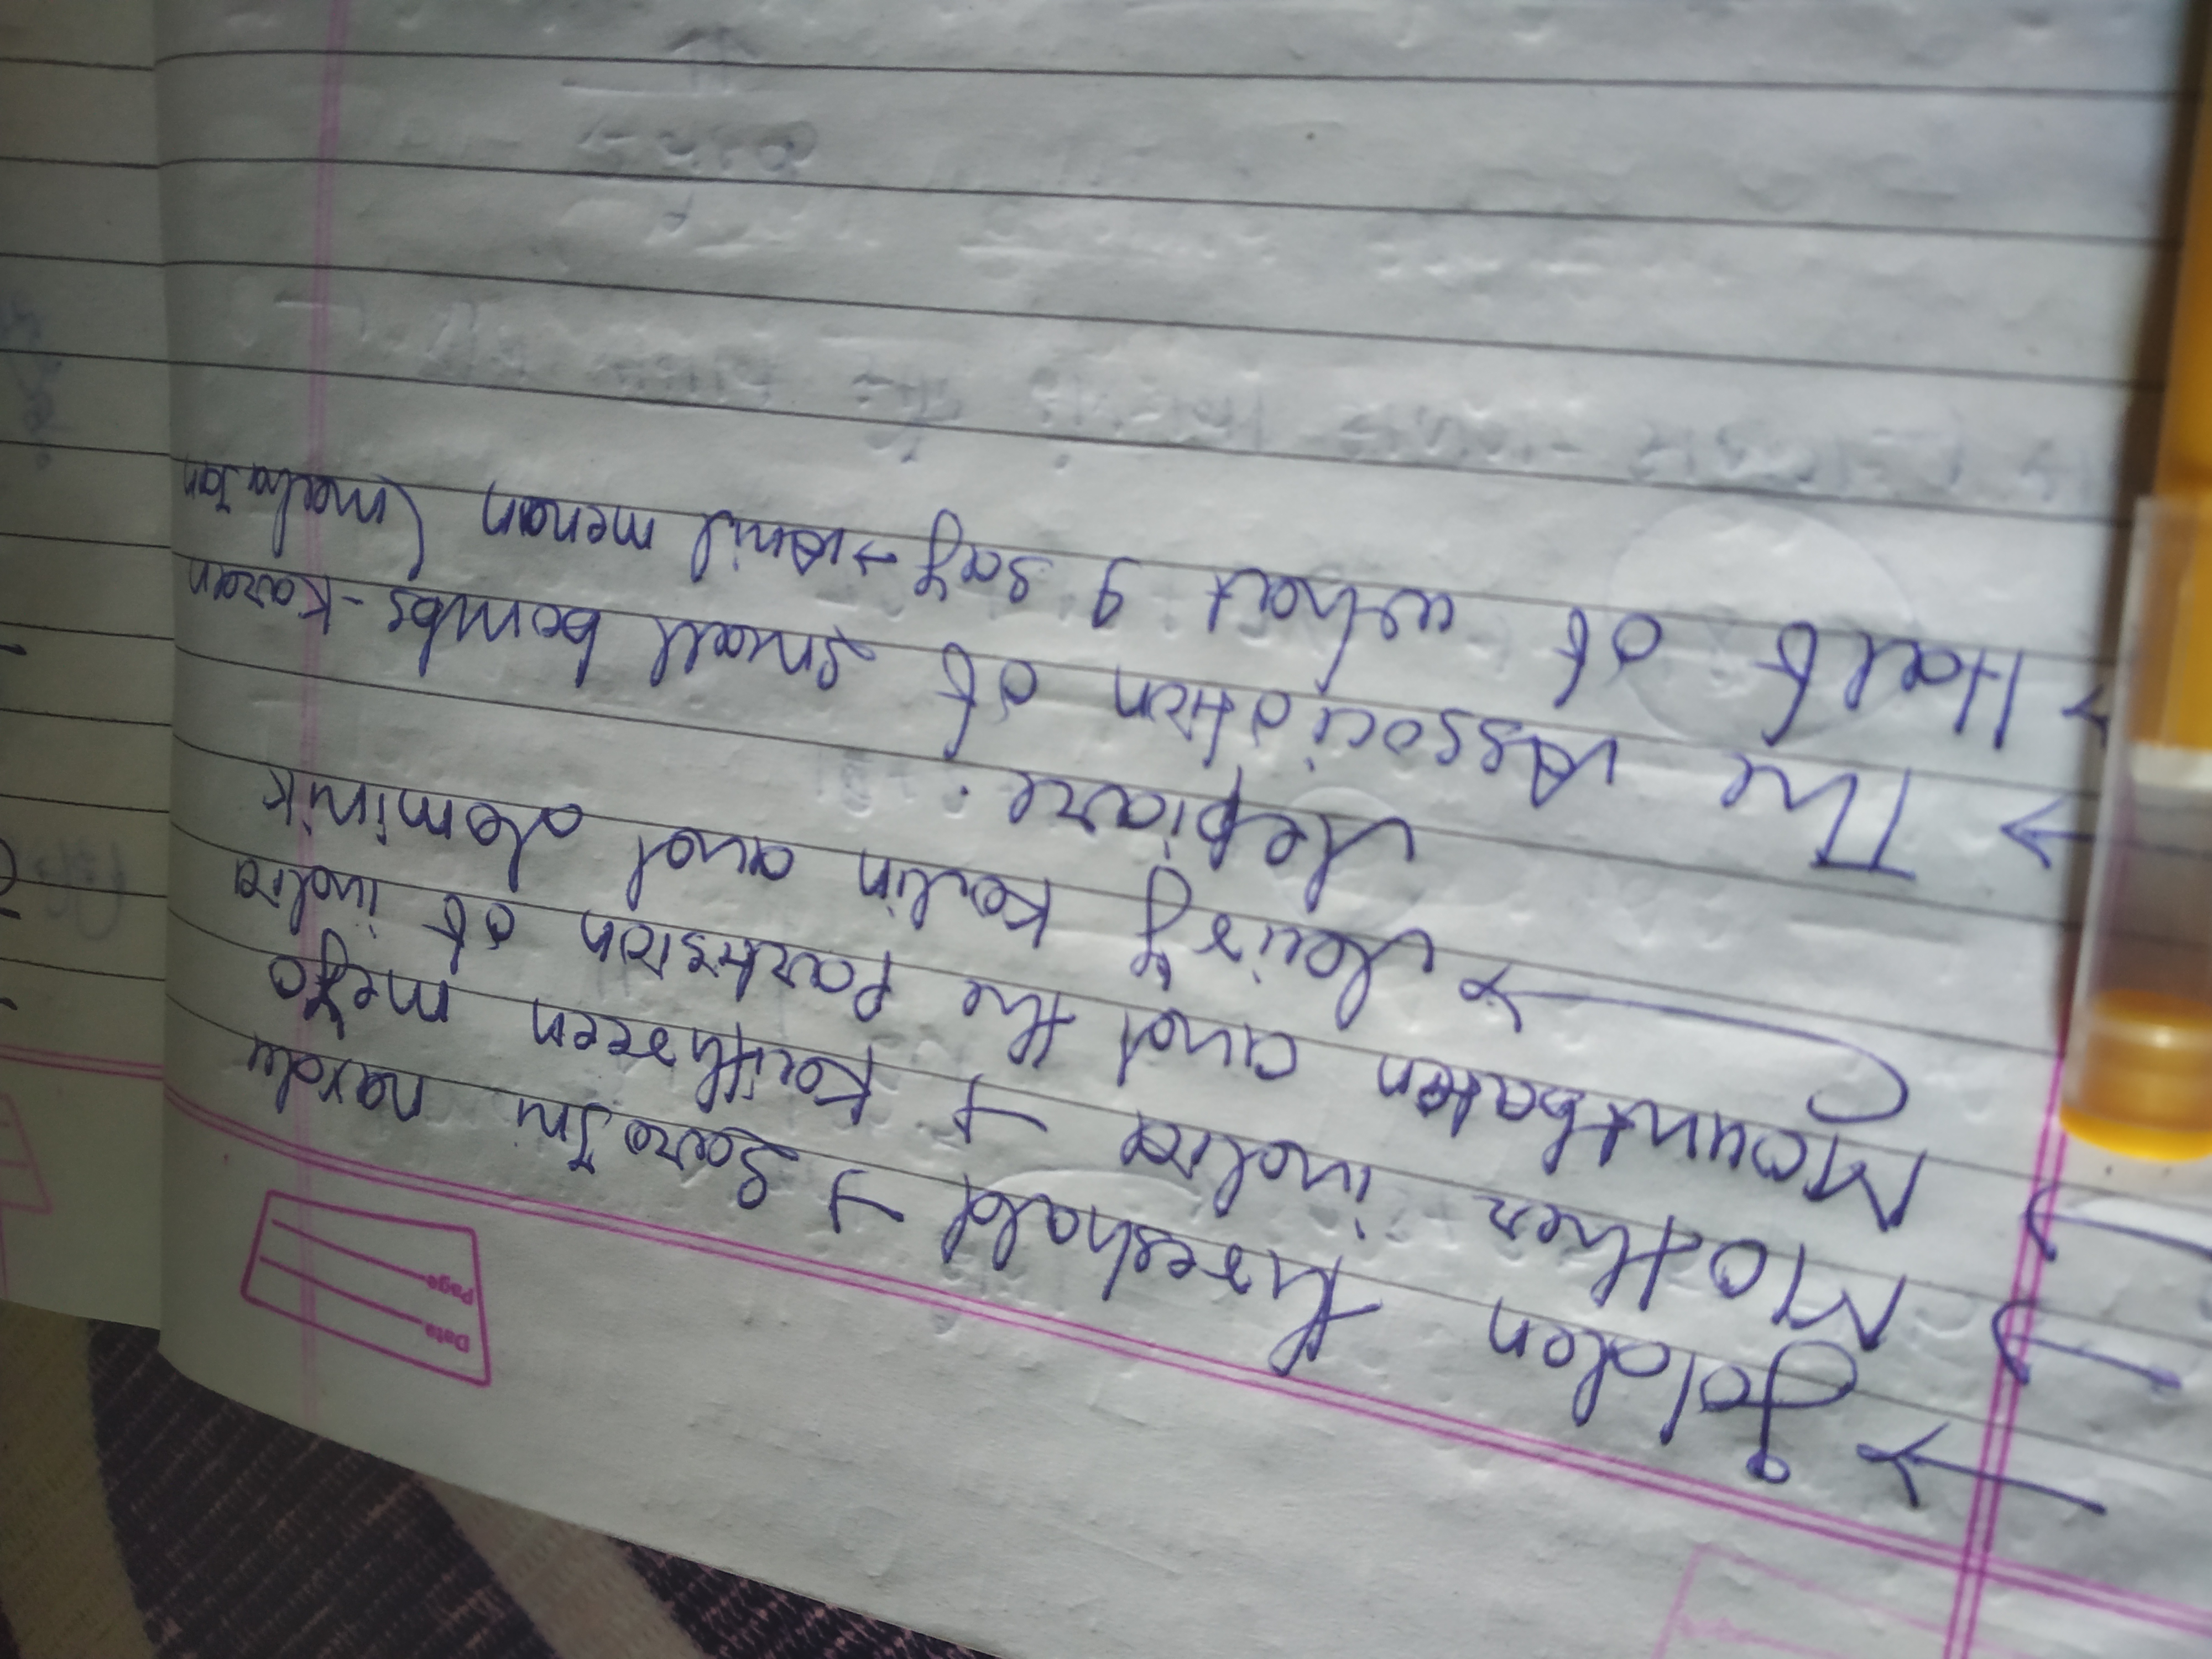 Date
Page
→ Golden threshold → Saro Jni naydu
→ Mother india → Kaithreen meyo
→ Mountbaten and the Partision of india
→ Lairy Kolin and dominik
lepiare.
→ The Association of small bombs - Karan
→ Half of what I say → Anil menon (macha Jan